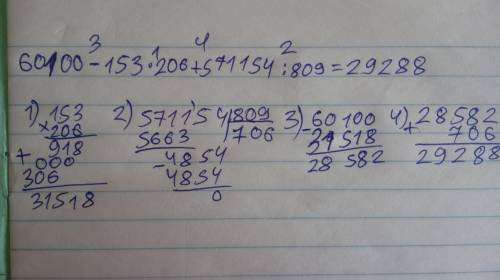 3 1 4 2
60100-153·206+571154:809=29288
1) 153 2) 571154 809 3) 60100 4) 28582
×206 5663 706 -31518 + 706
918 -4854 28 582 29288
+000 4854
306 0
31518